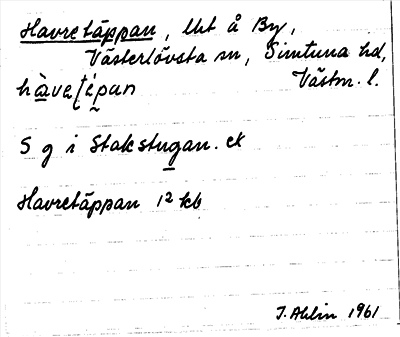 Havretäppan, lht å By,
Västerlövsta sn, Simtuna hd,
Västm. l.
S g i Stakstugan. ek
Havretäppan 12 kb
J. Ahlin 1961